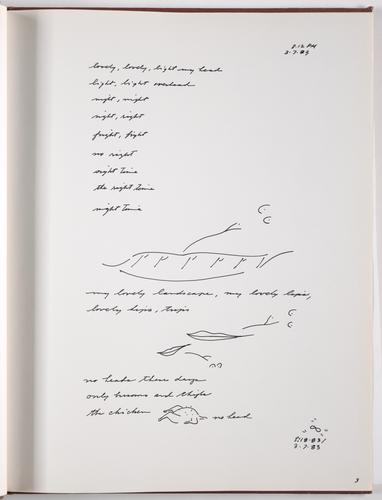 8:12 PM
3-7-83
lovely, lovely, light my head
light, light overhead
night, night
night, right
fright, fight
no right
night time
the right time
night time
my lovely landscape, my lovely lips,
lovely lips,
no heads these days
only bosoms and thighs
the chicken no head
3-7-83
3